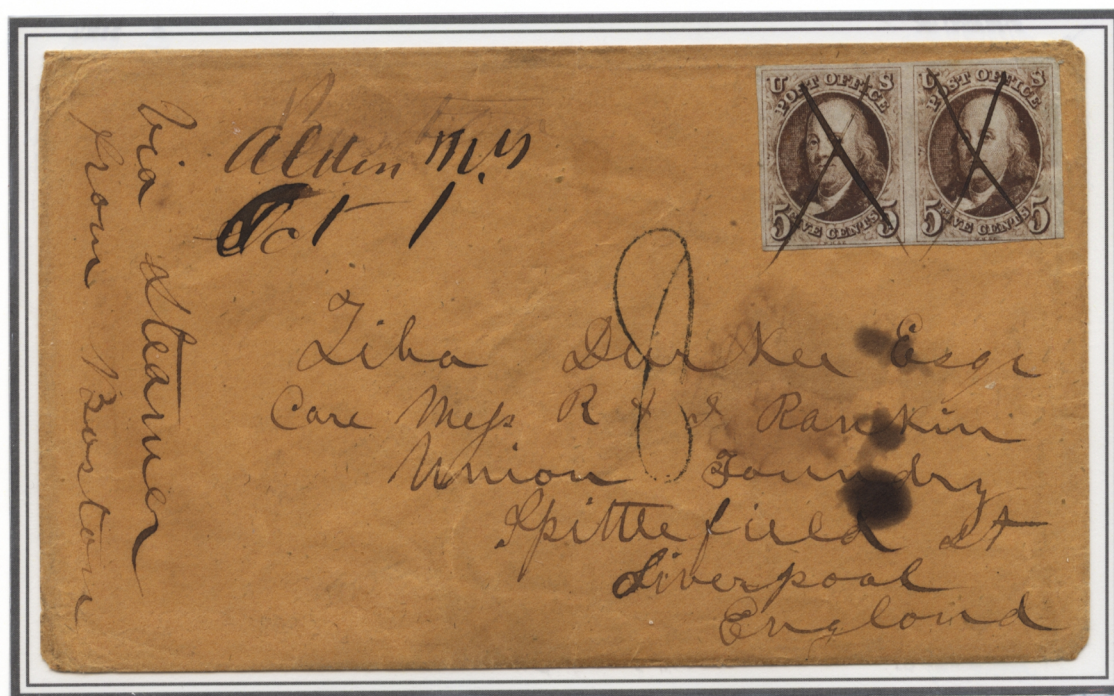 via Steamer
from Boston
Alden N.Y
Oct 1
U S
POST OFFICE
FIVE CENTS
5 5
U S
POST OFFICE
FIVE CENTS
5 5
8
Ziba Durkee Esqr
Care Mess R & J Rankin
Union Foundry
Spittlefield St
Liverpool
England